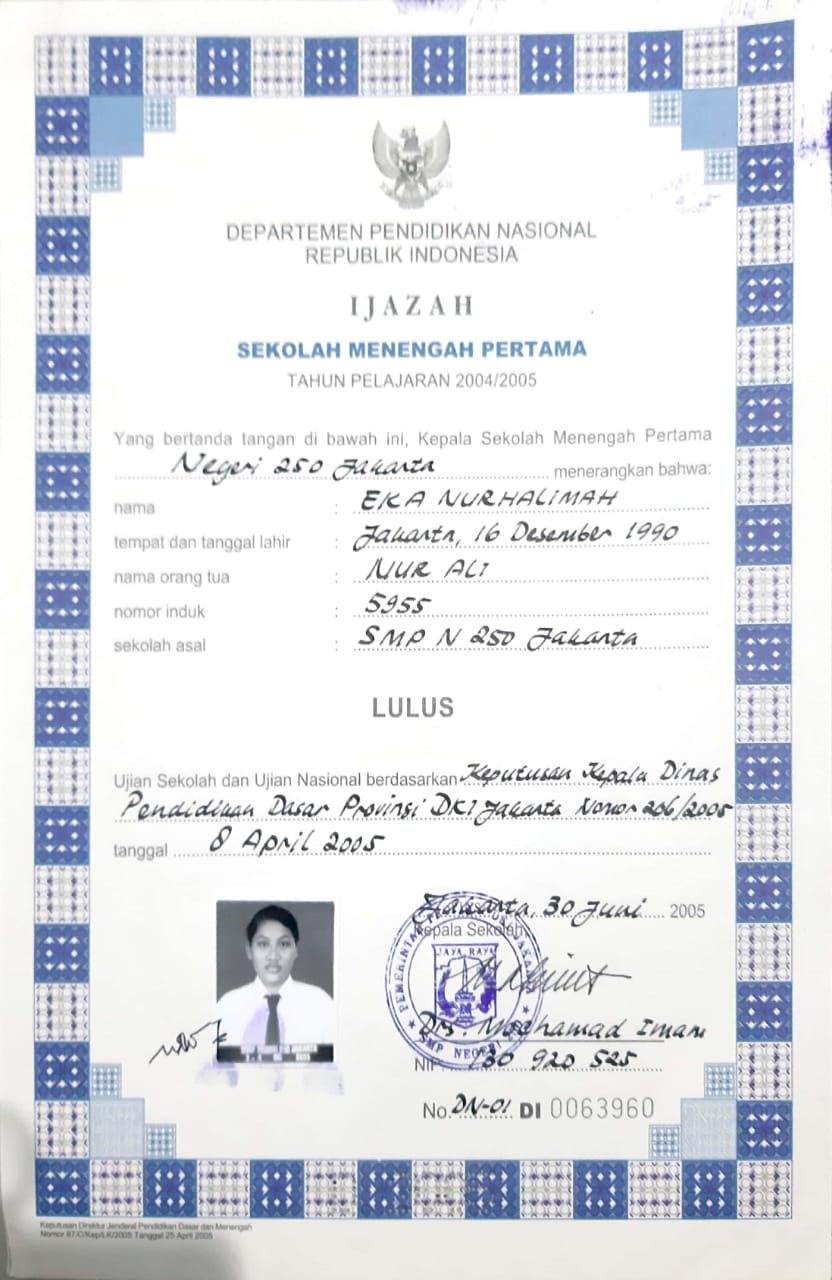 DEPARTEMEN PENDIDIKAN NASIONAL
REPUBLIK INDONESIA
IJAZAH
SEKOLAH MENENGAH PERTAMA
TAHUN PELAJARAN 2004/2005
Yang bertanda tangan di bawah ini, Kepala Sekolah Menengah Pertama
Negeri 250 Jakarta menerangkan bahwa:
nama : EKA NURHALIMAH
tempat dan tanggal lahir : Jakarta, 16 Desember 1990
nama orang tua : NUR ALI
nomor induk : 5955
sekolah asal : SMP N 250 Jakarta
LULUS
Ujian Sekolah dan Ujian Nasional berdasarkan Keputusan Kepala Dinas
Pendidikan Dasar Provinsi DKI Jakarta Nomor 206/2005
tanggal 8 April 2005
Jakarta, 30 Juni 2005
Kepala Sekolah,
JAYA RAYA
SMP NEGERI
Drs. Mochamad Imam
NIP. 130 920 525
No. DN-01 DI 0063960
Keputusan Direktur Jenderal Pendidikan Dasar dan Menengah
Nomor 87/C/Kep/LK/2005 Tanggal 25 April 2005